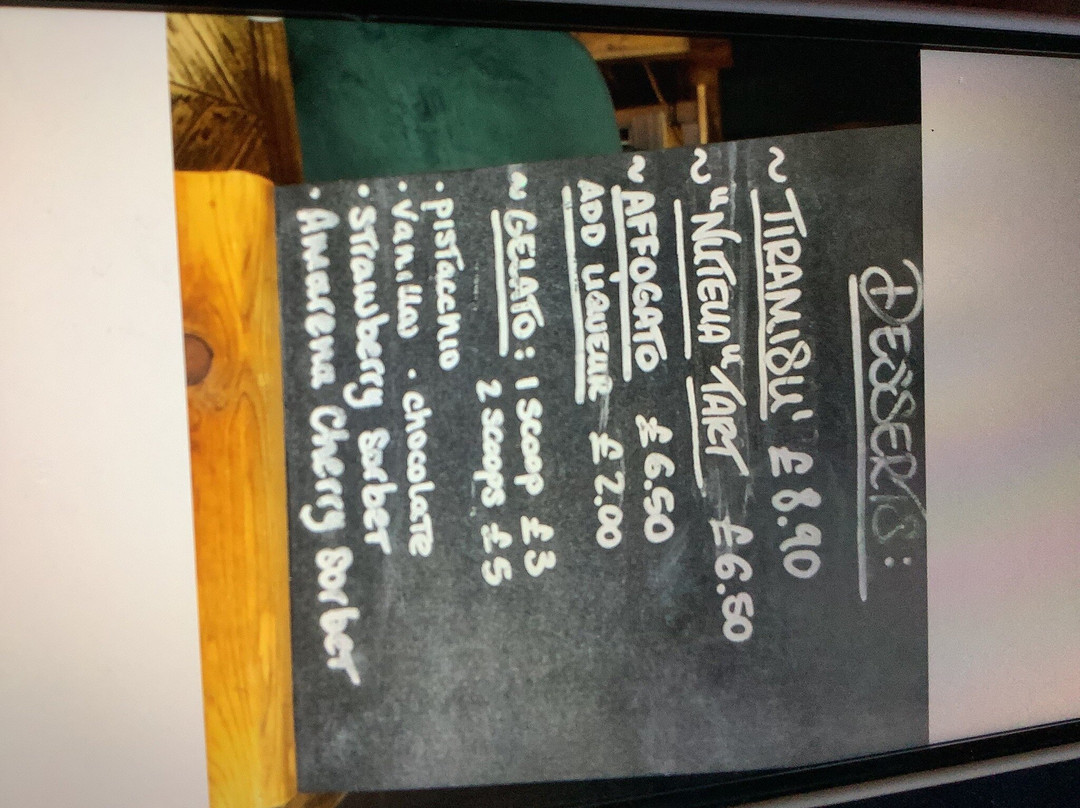 DESSERTS:
~ TIRAMISU' £8.90
~ "NUTELLA" TART £6.50
~ AFFOGATO £6.50
ADD LIQUEUR £2.00
~ GELATO: 1 SCOOP £3
2 SCOOPS £5
· PISTACCHIO
· Vanilla · chocolate
· Strawberry Sorbet
· Amarena Cherry Sorbet